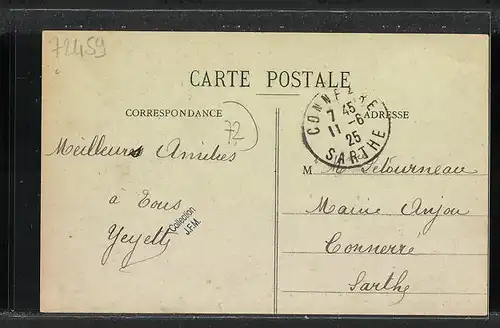 72459
CARTE POSTALE
CORRESPONDANCE
72
ADRESSE
CONNERRE
7 45
11 - 6
25
SARTHE
Meilleures Amitiés
à Tous
Yeyette
Collection
J.F.M.
M Me Letourneau
Connerré
Sarthe